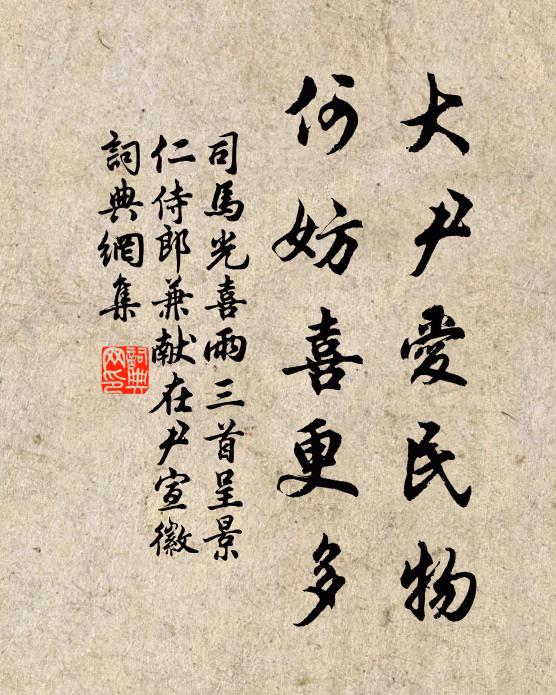 大尹愛民物
何妨喜更多
司馬光喜雨三首呈景
仁侍郎兼献在尹宣徽
詞典網集
詞典
网印